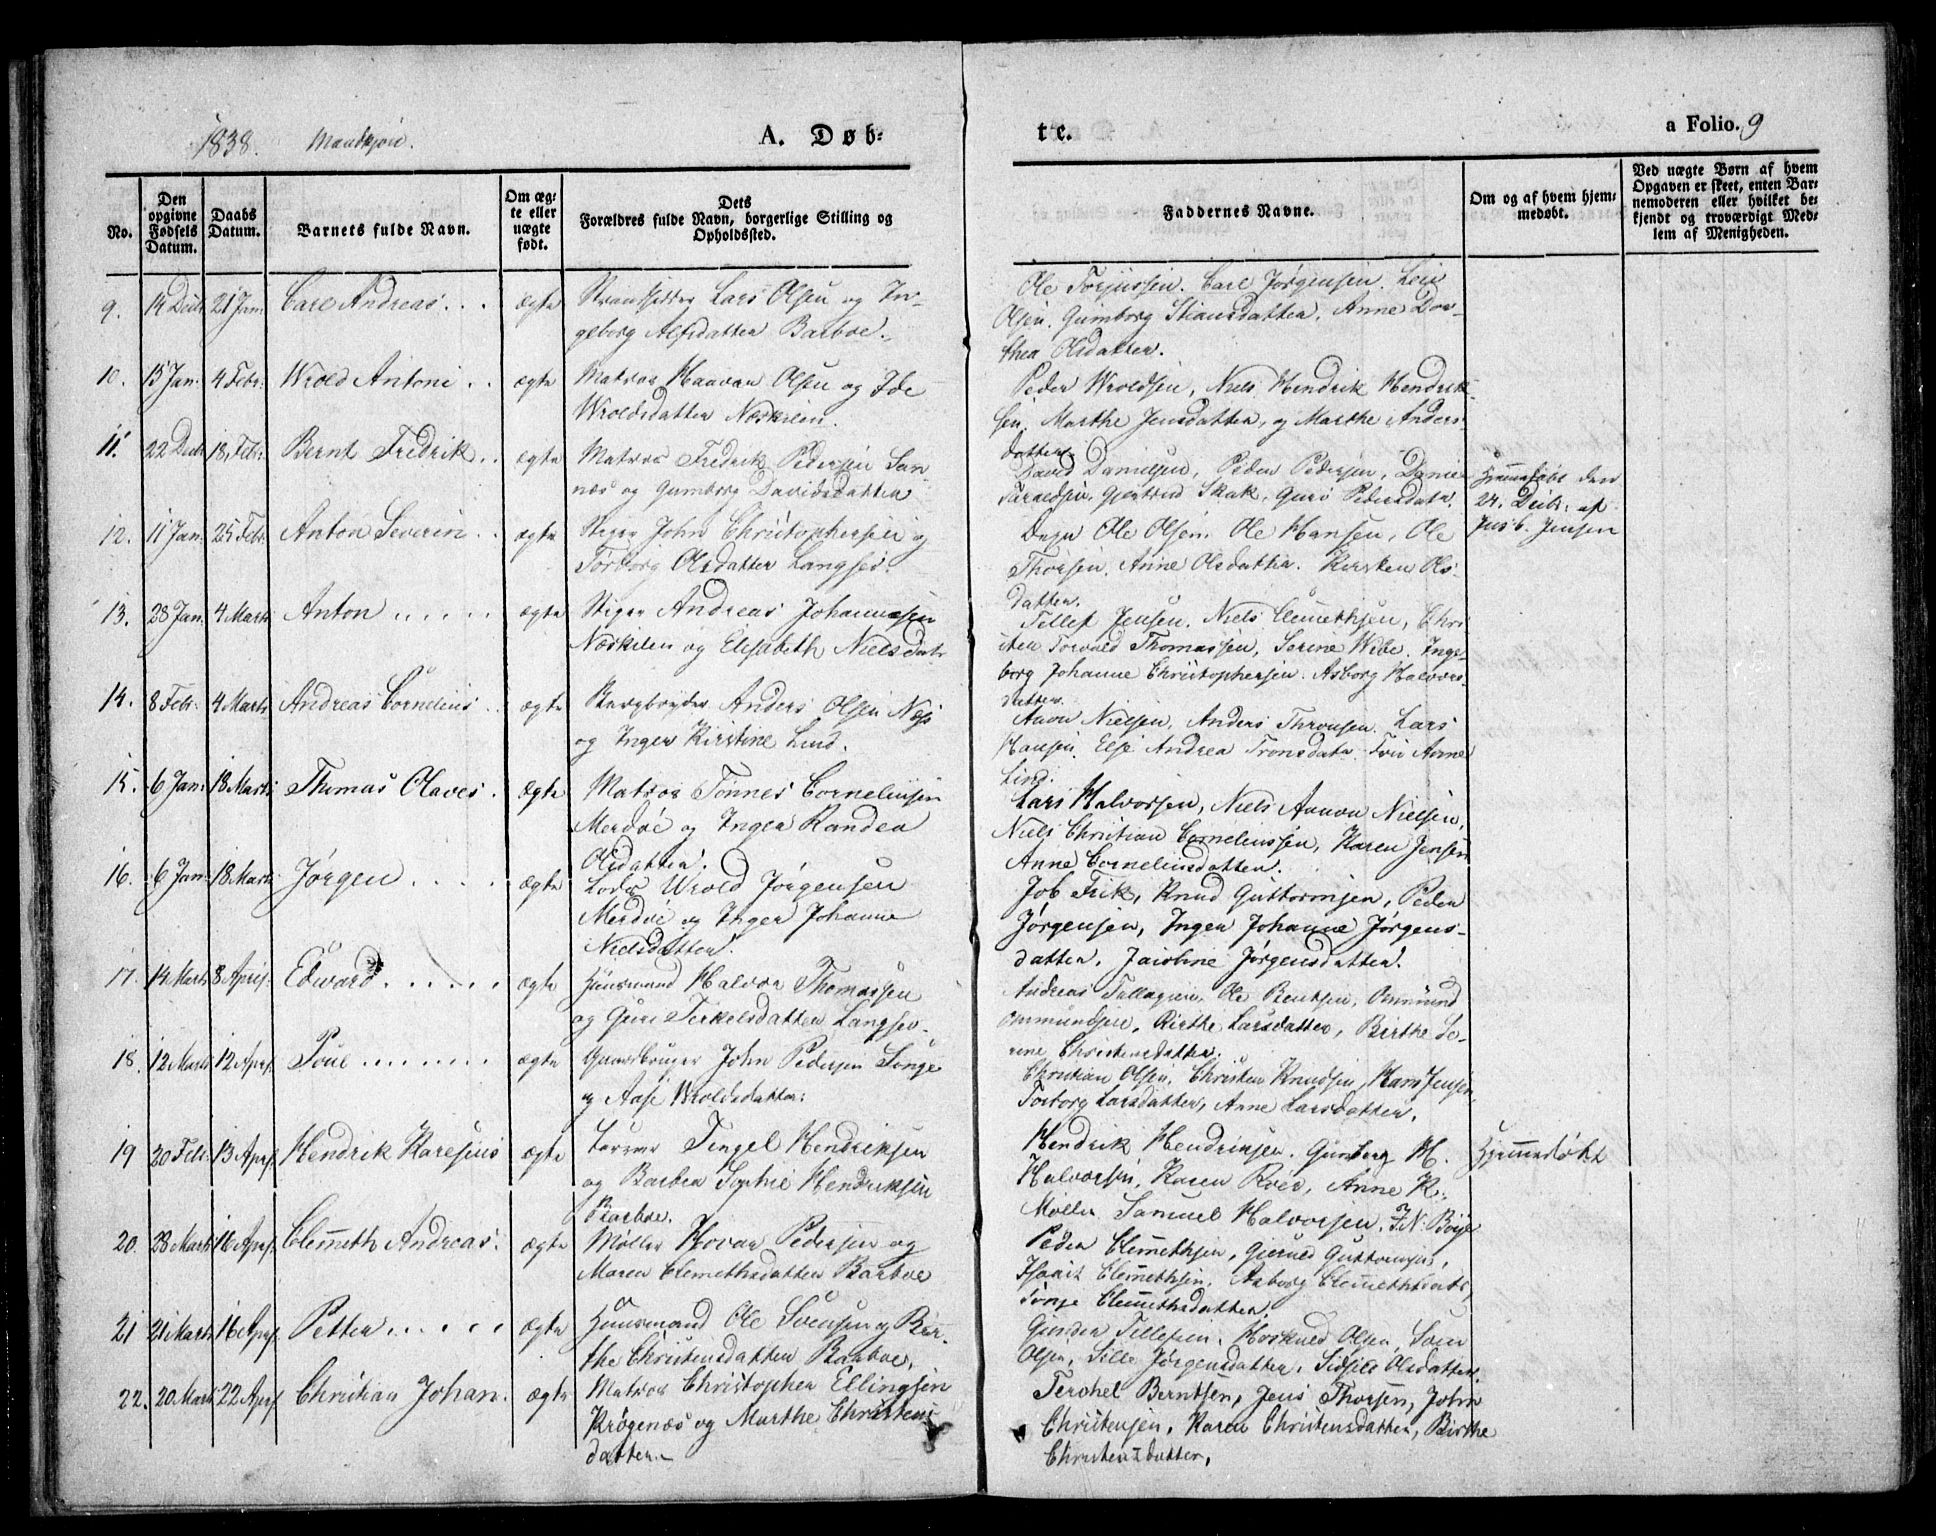 1838. Mandkjøn. A. Døb= te. a Folio. 9
No.
Den opgivne Fødsels Datum.
Daabs Datum.
Barnets fulde Navn.
Om ægte eller uægte født.
Dets Forældres fulde Navn, borgerlige Stilling og Opholdssted.
Faddernes Navne.
Om og af hvem hjemmedøbt.
Ved uægte Børn af hvem Opgaven er skeet, enten Barnemoderen eller hvilket bekjendt og troværdigt Medlem af Menigheden.
9. 14 Decbr 21 Jan: Carl Andreas . . . ægte Strandsidder Lars Olsen og In-
geborg Alfsdatter Barboe.
Ole Torjussen. Carl Jørgensen.
Olsen. Gumborg Stiansdatter. Anne Dor-
thea Olsdatter.
10. 13 Jan: 4 Febr: Wrold Antoni . . ægte Matros Haavor Olsen og Ide
Wroldsdatter Neskilen.
Peder Wroldsen, Niels Hendrik Hendrik-
sen, Marthe Jensdatter, og Marthe Anders-
datter.
11. 22 Decbr 18, Febr: Bernt Fredrik . . ægte Matros Fredrik Pedersen San-
næs og Gumborg Davidsdatter
David Danielsen, Peder Pedersen, Daniel
Gjertrud Skak, Guro Pedersdatr.
Hjemmedøbt den
24. Decbr: af
Jensen
12. 11 Jan: 25 Febr: Anton Severin . . ægte Stiger John Christophersen og
Torborg Olsdatter Langsev.
Ole Olsen. Ole Hansen, Ole
Thorsen. Anne Olsdatter. Kirsten Ols-
datter.
13. 28 Jan: 4 Marts Anton . . . . . ægte Stiger Andreas Johannesen
Neskilen og Elisabeth Nielsdatr
Tellef Jensen. Niels Clemethsen, Chri
sten Torvald Thomassen, Serine Wide. Inge-
borg Johanne Christophersen. Asborg Halvors-
datter.
14. 8 Febr: 4 Marts Andreas Cornelius . . ægte Bergbryder Anders Olsen Næs
og Inger Kirstine Lind.
Aanon Nielsen, Anders Thronsen. Lars
Hansen. Else Andrea Tronsdatr. Anne
Lind.
15. 6 Jan: 18 Marts Thomas Olaves . ægte Matros Tønnes Corneliusen
Merdøe og Inger Randea
Olsdatter.
Lars Halvorsen, Niels Aanon Nielsen,
Niels Christian Corneliussen, Karen Jensen
Anne Corneliusdatter.
16. 6 Jan: 18 Marts Jørgen . . . . ægte Lods Wrold Jørgensen
Merdøe og Inger Johanne
Nielsdatter.
Job Frik, Knud Guttormsen, Peder
Jørgensen, Inger Johanne Jørgens-
datter. Jacobine Jørgensdatter.
17. 14 Marts 8 April: Edward . . . . . . ægte Huusmand Halvor Thomassen
og Guri Terkelsdatter Langsev.
Andreas Ole Bentsen, Ommund
Ommundsen, Birthe Larsdatter, Birthe Se-
rine Christensdatter.
18. 12 Marts 12 April. Poul . . . . . . . ægte Gaardbruger John Pedersen Songe
og Aase Wroldsdatter.
Christian Olsen. Christen Knudsen, Hans Jensen,
Torborg Larsdatter, Anne Larsdatter.
19 20 Febr. 13 April. Hendrik Karesius ægte Tingel Hendriksen
og Barbra Sophie Hendriksen
Barboe.
Hendrik Hendriksen. Gumborg H.
Halvorsen, Karen Anne K.
Møller. Samuel Halvorsen.
Hjemmedøbt
20. 28 Marts 16 April. Clemeth Andreas. ægte Møller Hovar Pedersen og
Maren Clemethsdatter Barboe
Peder Clemethsen, Guttormsen,
Isaak Clemethsen. Asborg Clemethsdatr,
Tønje Clemethsdatter.
21 21 Marts 16 April. Petter . . . . . . ægte Huusmand Ole Svensen og Bir-
the Christensdatter Barboe.
Gunder Tellefsen. Olsen, Sven
Olsen, Sille Jørgensdatter. Sidsele Olsdatter.
22. 20 Marts 22 April. Christian Johan. ægte Matros Christopher Ellingsen
Krøgenæs og Marthe Christens-
datter.
Terchel Berntsen, Jens Thorsen, John
Christensen, Karen Christensdatter, Birthe
Christensdatter.